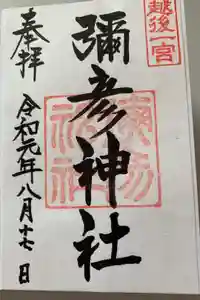 越後一宮
彌彦神社
奉拝
令和元年八月十七日